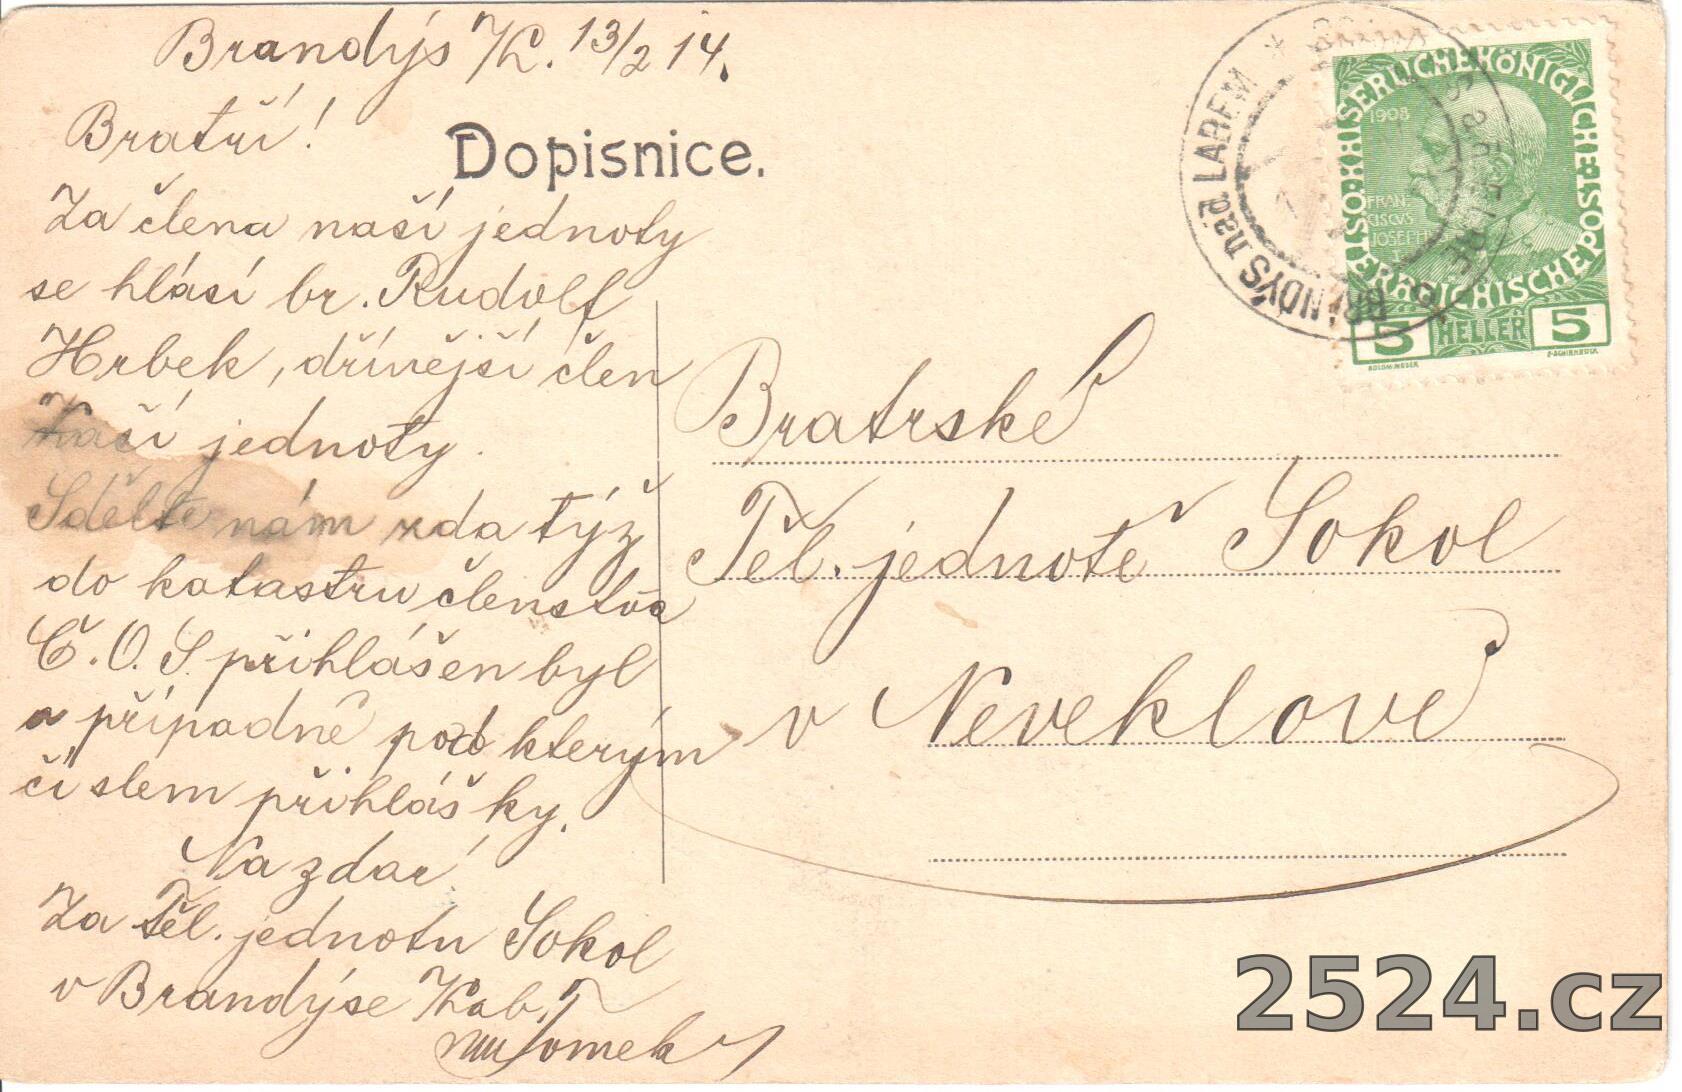 Brandýs n/L. 13/2 14.
Bratří!
Dopisnice.
Za člena naší jednoty
se hlásí br. Rudolf
Hrbek, dřívější člen
Vaší jednoty.
Sdělte nám zda týž
do katastru členstva
Č.O.S přihlášen byl
a případně pod kterým
číslem přihlášky.
Na zdar!
Za Těl. jednotu Sokol
v Brandýse n/Lab.
BRANDÝS nad LABEM
KAISERLICHE KÖNIGLICHE
ÖSTERREICHISCHE POST
1908
FRAN-
CISCVS
JOSEPH
5 HELLER 5
Bratrské
Těl. jednotě Sokol
v Neveklově
2524.cz